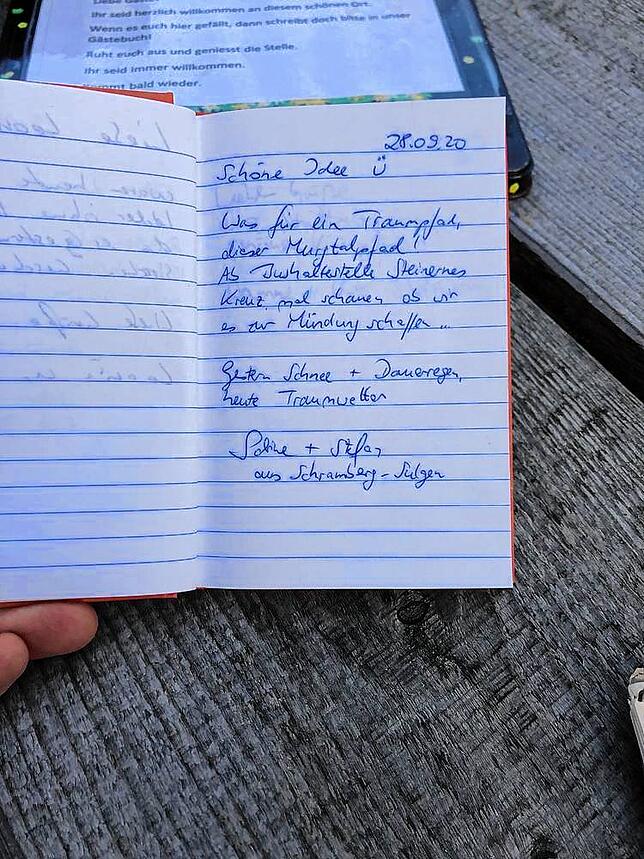 Liebe Gäste
Ihr seid herzlich willkommen an diesem schönen Ort.
Wenn es euch hier gefällt, dann schreibt doch bitte in unser
Gästebuch!
Ruht euch aus und geniesst die Stelle.
Ihr seid immer willkommen.
Kommt bald wieder.
28.09.20
Schöne Idee Ü
Was für ein Traumpfad,
dieser Murgtalpfad!
Ab Bushaltestelle Steinernes
Kreuz, mal schauen ob wir
es zur Mündung schaffen ...
Gestern Schnee + Dauerregen,
heute Traumwetter
Sabine + Stefan
aus Schramberg-Sulgen